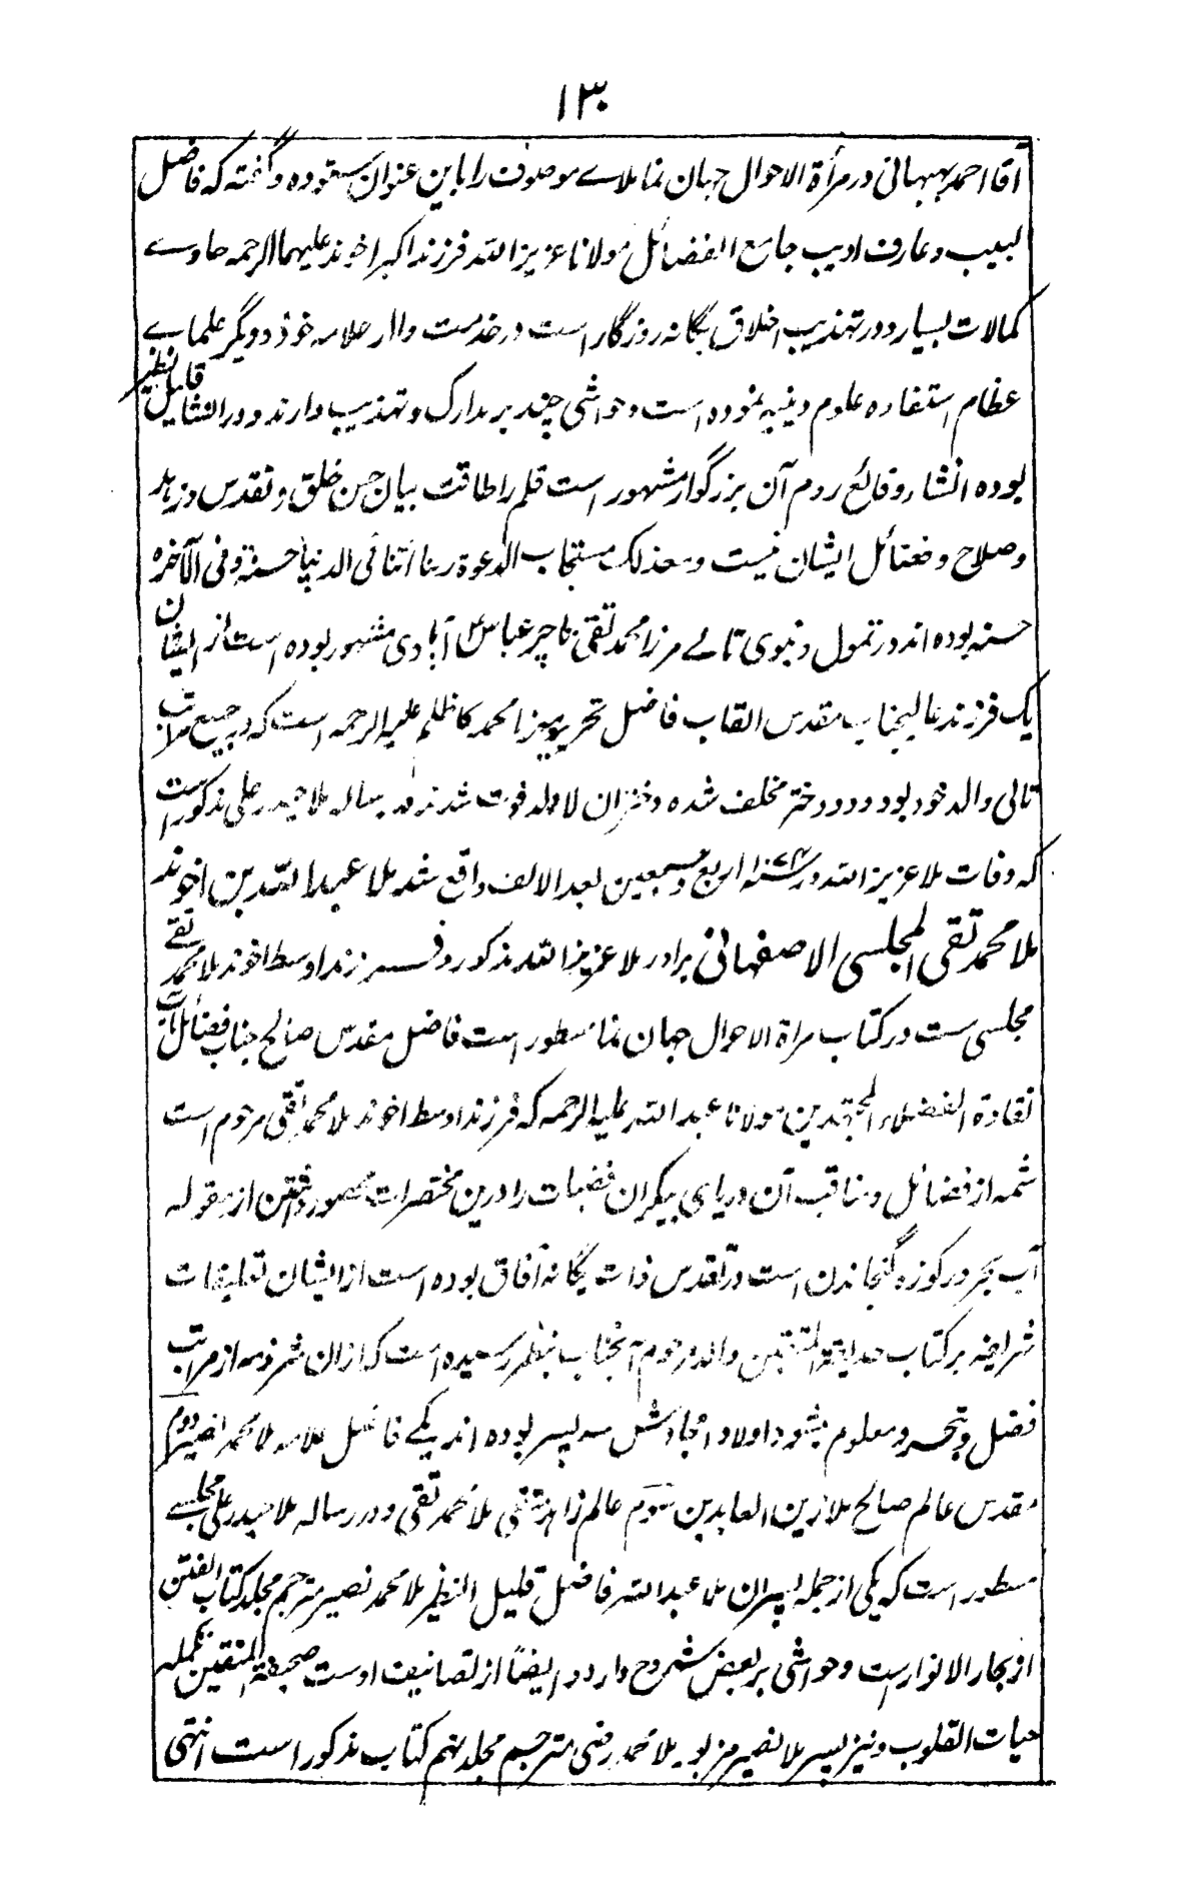 ۱۳۰
آقا احمد بهبهانی در مرأة الاحوال جهان نما ملاے موصوف را باین عنوان ستوده و گفته که فاضل
لبیب و عارف ادیب جامع الفضائل مولانا عزیز الله فرزند اکبر اخوند علیهما الرحمه حاوے
کمالات بسیار و در تهذیب اخلاق یگانه روزگار است در خدمت والد علامه خود و دیگر علماے
عظام استفاده علوم دینیه نموده است و حواشی چند بر مدارک و تهذیب دارند و در انشا قلیل النظیر
بوده انشاء وقائع روم آن بزرگوار مشهور است قلم را طاقت بیان حسن خلق و تقدس و زهد
و صلاح و فضائل ایشان نیست و معذلک مستجاب الدعوة ربنا آتنا فی الدنیا حسنة و فی الآخرة
حسنه بوده اند در تمول دنیوی تالے مرزا محمد تقی تاجر عباس آبادی مشهور بوده است از ایشان
یک فرزند عالیجناب مقدس القاب فاضل نحریر میرزا محمد کاظم علیه الرحمه است که در جمیع مراتب
تالی والد خود بود و دو دختر مخلف شده دختران لا ولد فوت شدند در رساله ملا حیدر علی مذکور است
که وفات ملا عزیز الله در سنه ۱۰۷۴ اربع و سبعین بعد الالف واقع شد ملا عبد الله بن اخوند
ملا محمد تقی المجلسی الاصفهانی برادر ملا عزیز الله مذکور و فرزند اوسط اخوند ملا محمد تقے
مجلسی ست در کتاب مراة الاحوال جهان نما مسطور است فاضل مقدس صالح جناب فضائل مآب
نقادة الفضلاء المجتهدین مولانا عبد الله علیه الرحمه که فرزند اوسط اخوند ملا محمد تقی مرحوم است
شمه از فضائل و مناقب آن دریای بیکران فضیلت را درین مختصرات محصور داشتن از مقوله
آب بحر در کوزه گنجاندن است در تقدس ذات یگانه آفاق بوده است از ایشان تعلیقات
شرایفه بر کتاب حدیقة المتقین والد مرحوم آنجناب بنظر رسیده است که ازان شرذمه از مراتب
فضل و تبحر و معلوم میشود اولاد امجادش سه پسر بوده اند یکے فاضل علامه ملا محمد نصیر دوم
مقدس عالم صالح ملا زین العابدین سوم عالم زاهد متقی ملا محمد تقی و در رساله ملا حیدر علی مجلسے
مسطور است که یکی از جمله پسران ملا عبد الله فاضل قلیل النظیر ملا محمد نصیر مترجم مجلد کتاب الفتن
از بحار الانوار است و حواشی بر بعض شروح دارد و ایضاً از تصانیف اوست صحیفة المتقین تکمله
حیات القلوب و نیز پسر ملا نصیر مزبور ملا محمد رضی مترجم مجلد نهم کتاب مذکور است انتهی